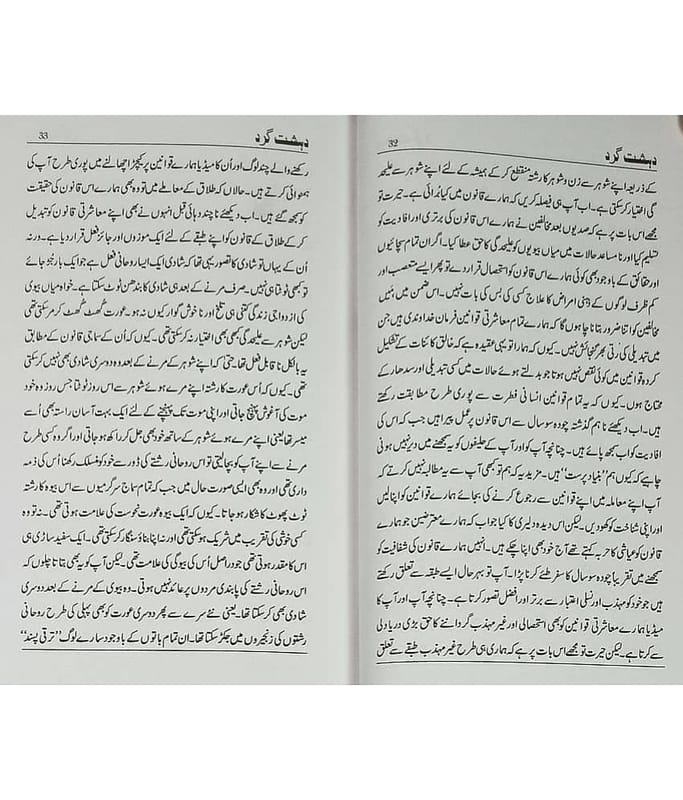 32
دہشت گرد
کے ذریعہ اپنے شوہر سے زن و شوہر کا رشتہ منقطع کر کے ہمیشہ کے لئے اپنے شوہر سے علیحد
گی اختیار کر سکتی ہے۔ اب آپ ہی فیصلہ کریں کہ ہمارے قانون میں کیا بُرائی ہے۔ حیرت تو
مجھے اس بات پر ہے کہ صدیوں بعد مخالفین نے ہمارے اس قانون کی برتری اور افادیت کو
تسلیم کیا اور نا مساعد حالات میں میاں بیویوں کو علیحدگی کا حق عطا کیا۔ اگر ان تمام سچائیوں
اور حقائق کے باوجود بھی کوئی ہمارے اس قانون کو استحصال قرار دے تو پھر ایسے متعصب اور
کم ظرف لوگوں کے ذہنی امراض کا علاج کسی کی بس کی بات نہیں۔ اس ضمن میں مَیں
مخالفین کو اتنا ضرور بتانا چاہوں گا کہ ہمارے تمام معاشرتی قوانین فرمانِ خداوندی ہیں جن
میں تبدیلی کی رتی بھر گنجائش نہیں۔ کیوں کہ ہمارا تو یہی عقیدہ ہے کہ خالقِ کائنات کے تشکیل
کردہ قوانین میں کوئی نقص نہیں ہوتا جو بدلتے ہوئے حالات میں کسی تبدیلی اور سدھار کے
محتاج ہوں۔ کیوں کہ یہ تمام قوانین انسانی فطرت سے پوری طرح مطابقت رکھتے
ہیں۔ اب دیکھئے نا ہم گذشتہ چودہ سو سال سے اس قانون پر عمل پیرا ہیں جب کہ اس کی
افادیت کو اب سمجھ پائے ہیں۔ چنانچہ آپ کو اور آپ کے حلیفوں کو یہ سمجھنے میں دیر نہیں ہونی
چاہئے کہ کیوں ہم "بنیاد پرست" ہیں۔ مزید یہ کہ ہم تو کبھی آپ سے یہ مطالبہ نہیں کرتے کہ
آپ اپنے معاملہ میں اپنے قوانین سے رجوع کرنے کی بجائے ہمارے قوانین کو اپنا لیں
اور اپنی شناخت کو کھو دیں۔ لیکن اس دیدہ دلیری کا کیا جواب کہ ہمارے معترضین جو ہمارے
قانون کو عیاشی کا حربہ کہتے تھے آج خود بھی اپنا چکے ہیں۔ انہیں ہمارے قانون کی شفافیت کو
سمجھنے میں تقریباً چودہ سو سال کا سفر طئے کرنا پڑا۔ آپ تو بہر حال ایسے طبقہ سے تعلق رکھتے
ہیں جو خود کو مہذب اور نسلی اعتبار سے برتر اور افضل تصور کرتا ہے۔ چنانچہ آپ اور آپ کا
میڈیا ہمارے معاشرتی قوانین کو بھی استحصالی اور غیر مہذب گرداننے کا حق بڑی دریا دلی
سے کرتا ہے۔ لیکن حیرت تو مجھے اس بات پر ہے کہ ہماری ہی طرح غیر مہذب طبقے سے تعلق
33
دہشت گرد
رکھنے والے چند لوگ اور اُن کا میڈیا ہمارے قوانین پر کیچڑ اچھالنے میں پوری طرح آپ کی
ہمنوائی کرتے ہیں۔ حالاں کہ طلاق کے معاملے میں تو وہ بھی ہمارے اس قانون کی حقیقت
کو سمجھ گئے ہیں۔ اب دیکھئے نا چند دہائی قبل انہوں نے بھی اپنے معاشرتی قانون کو تبدیل
کر کے طلاق کے قانون کو اپنے طبقے کے لئے ایک موزوں اور جائز فعل قرار دیا ہے۔ ورنہ
اُن کے یہاں تو شادی کا تصور یہی تھا کہ شادی ایک ایسا روحانی فعل ہے جو ایک بار بندھ جائے
تو کبھی ٹوٹتا ہی نہیں۔ صرف مرنے کے بعد ہی شادی کا بندھن ٹوٹ سکتا ہے۔ خواہ میاں بیوی
کی ازدواجی زندگی کتنی ہی تلخ اور نا خوش گوار کیوں نہ ہو۔ عورت گھٹ گھٹ کر مر سکتی تھی
لیکن شوہر سے علیحدگی کبھی بھی اختیار نہ کر سکتی تھی۔ کیوں کہ اُن کے سماجی قانون کے مطابق
یہ بالکل نا قابلِ فعل تھا۔ حتیٰ کہ اپنے شوہر کے مرنے کے بعد وہ دوسری شادی بھی نہیں کر سکتی
تھی۔ کیوں کہ اُس عورت کا رشتہ اپنے مرے ہوئے شوہر سے اس روز ٹوٹتا جس روز وہ خود
موت کی آغوش پہنچ جاتی اور اپنی موت تک پہنچنے کے لئے ایک بہت آسان راستہ بھی اُسے
میسر تھا یعنی اپنے مرے ہوئے شوہر کے ساتھ خود بھی جل کر راکھ ہو جاتی اور اگر وہ کسی طرح
مرنے سے اپنے آپ کو بچا لیتی تو اس روحانی رشتے کی ڈور سے خود کو منسلک رکھنا اُس کی ذمہ
داری تھی اور وہ بھی ایسی صورتِ حال میں جب کہ تمام سماج سرگرمیوں سے اس بیوہ کا رشتہ
ٹوٹ پھوٹ کا شکار ہو جاتا۔ کیوں کہ ایک بیوہ عورت نحوست کی علامت ہوتی تھی۔ نہ تو وہ
کسی خوش کی تقریب میں شریک ہو سکتی تھی اور نہ اپنا بناؤ سنگار کر سکتی تھی۔ ایک سفید ساڑی ہی
اس کا مقدر ہوتی تھی جو در اصل اُس کی بیوگی کی علامت تھی۔ لیکن آپ کو یہ بھی بتاتا چلوں کہ
اس روحانی رشتے کی پابندی مردوں پر عائد نہیں ہوتی۔ وہ بیوی کے مرنے کے بعد دوسری
شادی بھی کر سکتا تھا۔ یعنی نئے سرے سے پھر دوسری عورت کو بھی پہلی کی طرح روحانی
رشتوں کی زنجیروں میں جکڑ سکتا تھا۔ ان تمام باتوں کے باوجود سارے لوگ "ترقی پسند"